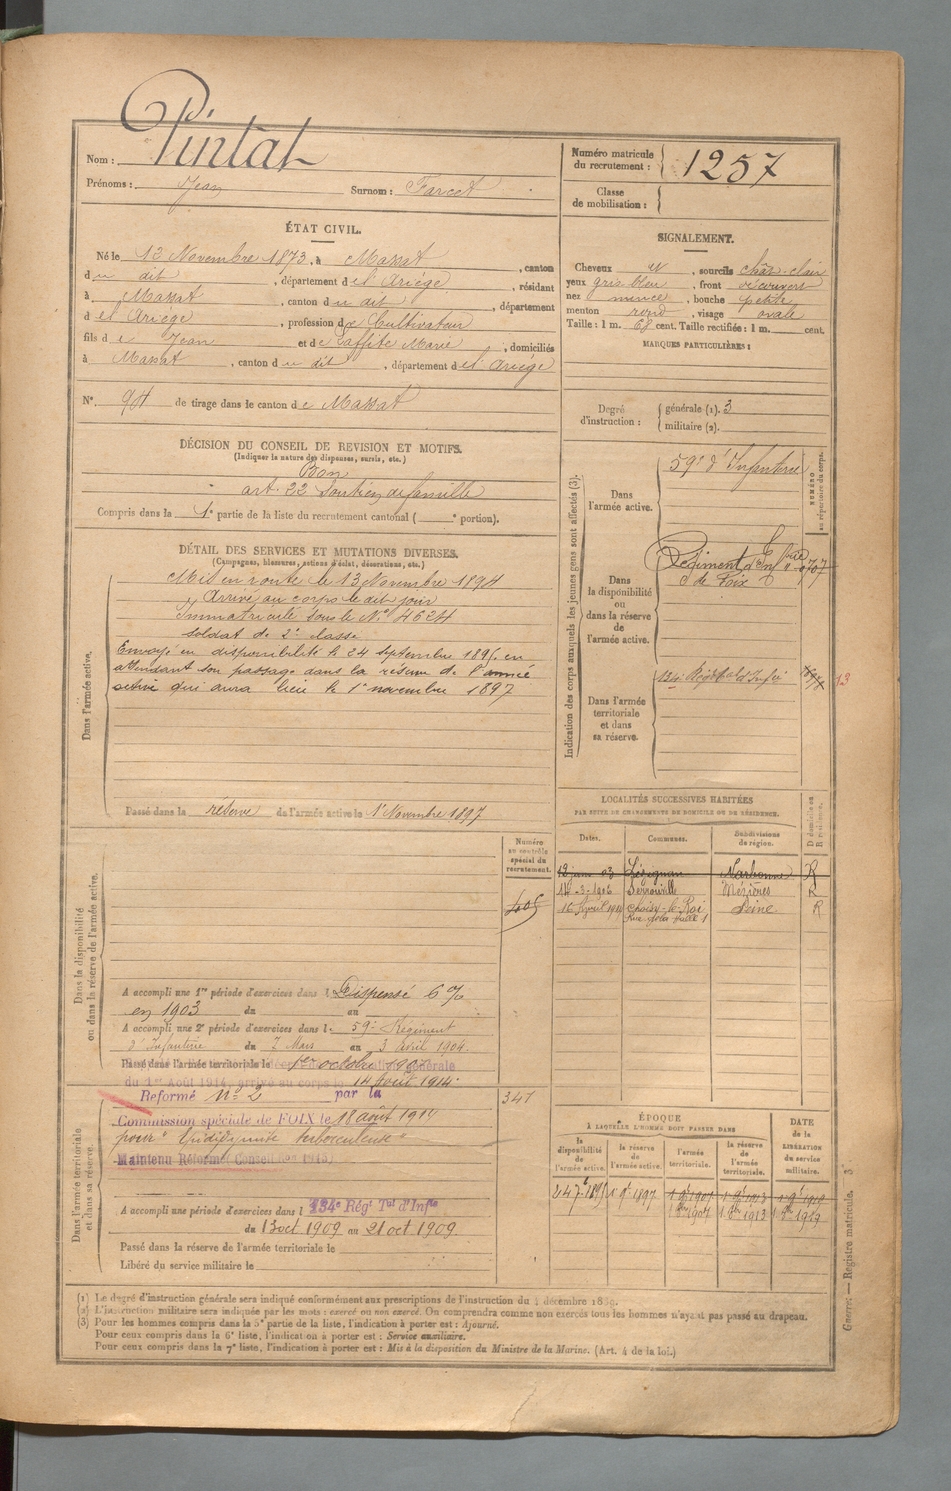 Pintat
Nom :
Prénoms : Jean Surnom : Farcet
Numéro matricule du recrutement : 1257
Classe de mobilisation :
ÉTAT CIVIL.
Né le 12 Novembre 1873, à Massat, canton
du dit, département de l'Ariège, résidant
à Massat, canton du dit, département
de l'Ariège, profession de Cultivateur
fils de Jean et de Laffite Marie, domiciliés
à Massat, canton du dit, département de l'Ariège
N° 94 de tirage dans le canton de Massat
SIGNALEMENT.
Cheveux et, sourcils chât. clair
yeux gris bleu, front découvert
nez mince, bouche petite
menton rond, visage ovale
Taille : 1 m. 68 cent. Taille rectifiée : 1 m. cent.
MARQUES PARTICULIÈRES :
Degré d'instruction : générale (1). 3
militaire (2).
DÉCISION DU CONSEIL DE REVISION ET MOTIFS.
(Indiquer la nature des dispenses, sursis, etc.)
Bon
art. 22 Soutien de famille
Compris dans la 1e partie de la liste du recrutement cantonal ( e portion).
DÉTAIL DES SERVICES ET MUTATIONS DIVERSES.
(Campagnes, blessures, actions d'éclat, décorations, etc.)
Dans l'armée active.
Mis en route le 13 Novembre 1894
Arrivé au corps le dit jour
Immatriculé sous le N° 4624
soldat de 2e classe
Envoyé en disponibilité le 24 septembre 1895 en
attendant son passage dans la réserve de l'armée
active qui aura lieu le 1er novembre 1897
Passé dans la réserve de l'armée active le 1er Novembre 1897
Indication des corps auxquels les jeunes gens sont affectés (3).
NUMÉRO au répertoire du corps.
Dans l'armée active.
59e d'Infanterie
Dans la disponibilité ou dans la réserve de l'armée active.
Régiment d'Inf
de Foix
Dans l'armée territoriale et dans sa réserve.
134e Régt tal d'Infie
13
LOCALITÉS SUCCESSIVES HABITÉES
PAR SUITE DE CHANGEMENTS DE DOMICILE OU DE RÉSIDENCE.
Dates. Communes. Subdivisions de région. D domicile ou R résidence.
12 juin 03 Lézignan Narbonne R
14-3-1906 Serrouville Mézières R
Choisy-le-Roi Seine R
Rue de la Halle 1
Dans la disponibilité ou dans la réserve de l'armée active.
Numéro au contrôle spécial du recrutement.
405
A accompli une 1re période d'exercices dans l Dispensé 6 %
en 1903 du au
A accompli une 2e période d'exercices dans l. 59e Régiment
d'Infanterie du 7 Mars au 3 Avril 1904.
Passé dans l'armée territoriale le 1er octobre 1907
du 1er Août 1914, arrivé au corps le 14 Août 1914.
Dans l'armée territoriale et dans sa réserve.
347
Reformé N° 2 par la
Commission spéciale de FOIX le 18 août 1914
pour "Epididymite tuberculeuse"
Maintenu Réformé
A accompli une période d'exercices dans l 134e Régt Tal d'Infie
du 13 oct 1909 au 21 oct 1909.
Passé dans la réserve de l'armée territoriale le
Libéré du service militaire le
ÉPOQUE
À LAQUELLE L'HOMME DOIT PASSER DANS
la disponibilité de l'armée active. la réserve de l'armée active. l'armée territoriale. la réserve de l'armée territoriale. DATE de la LIBÉRATION du service militaire.
24 7bre 1895 1 9bre 1897 1 9bre 1907 1 9bre 1913 1 9bre 1919
1 8bre 1907 1 8bre 1913 1 8bre 1919
(1) Le degré d'instruction générale sera indiqué conformément aux prescriptions de l'instruction du 4 décembre 1889.
(2) L'instruction militaire sera indiquée par les mots : exercé ou non exercé. On comprendra comme non exercés tous les hommes n'ayant pas passé au drapeau.
(3) Pour les hommes compris dans la 5e partie de la liste, l'indication à porter est : Ajourné.
Pour ceux compris dans la 6e liste, l'indication à porter est : Service auxiliaire.
Pour ceux compris dans la 7e liste, l'indication à porter est : Mis à la disposition du Ministre de la Marine. (Art. 4 de la loi.)
Guerre. — Registre matricule.